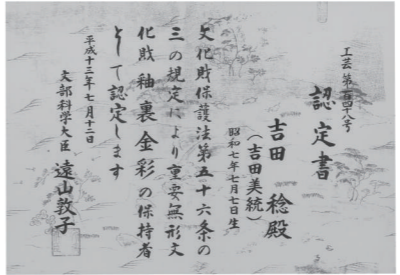 工芸第百四八号
認定書
吉田 稔殿
(吉田美統)
昭和七年七月七日生
文化財保護法第五十六条の
三の規定により重要無形文
化財釉裏金彩の保持者
として認定します
平成十三年七月十二日
文部科学大臣 遠山敦子